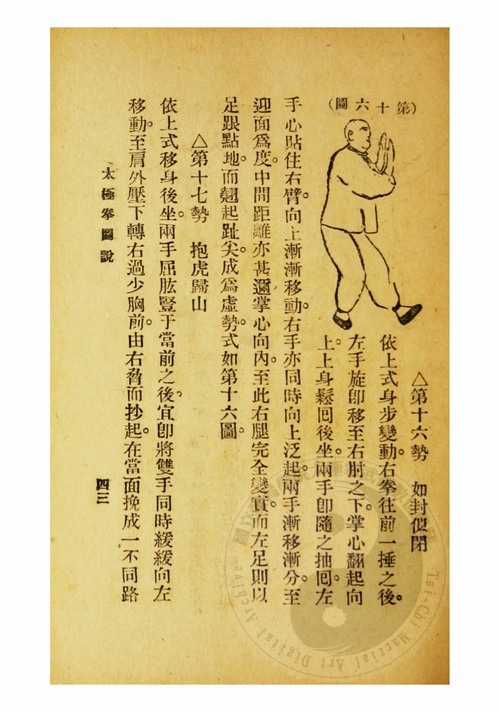 （第十六圖）
△第十六勢　如封似閉
依上式身步變動。右拳往前一捶之後。
左手旋卽移至右肘之下。掌心翻起向
上。上身鬆回後坐。兩手卽隨之抽回。左
手心貼住右臂。向上漸漸移動。右手亦同時向上泛起。兩手漸移漸分。至
迎面爲度。中間距離亦甚邇。掌心向內。至此右腿完全變實。而左足則以
足跟點地。而翹起趾尖。成爲虛勢。式如第十六圖。
△第十七勢　抱虎歸山
依上式移身後坐。兩手屈肱豎于當前之後。宜卽將雙手同時緩緩向左
移動。至肩外壓下轉右過少胸前。由右脅而抄起。在當面挽成一不同路
太極拳圖說
四三
Tai-Chi Martial Art Digital Archive